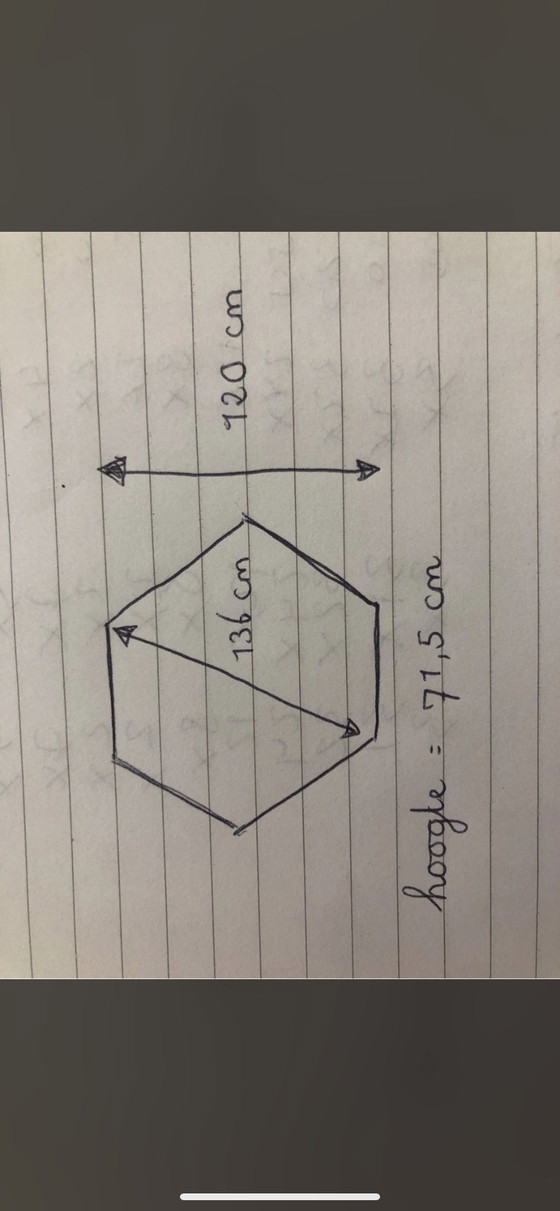 120 cm
136 cm
hoogte = 71,5 cm